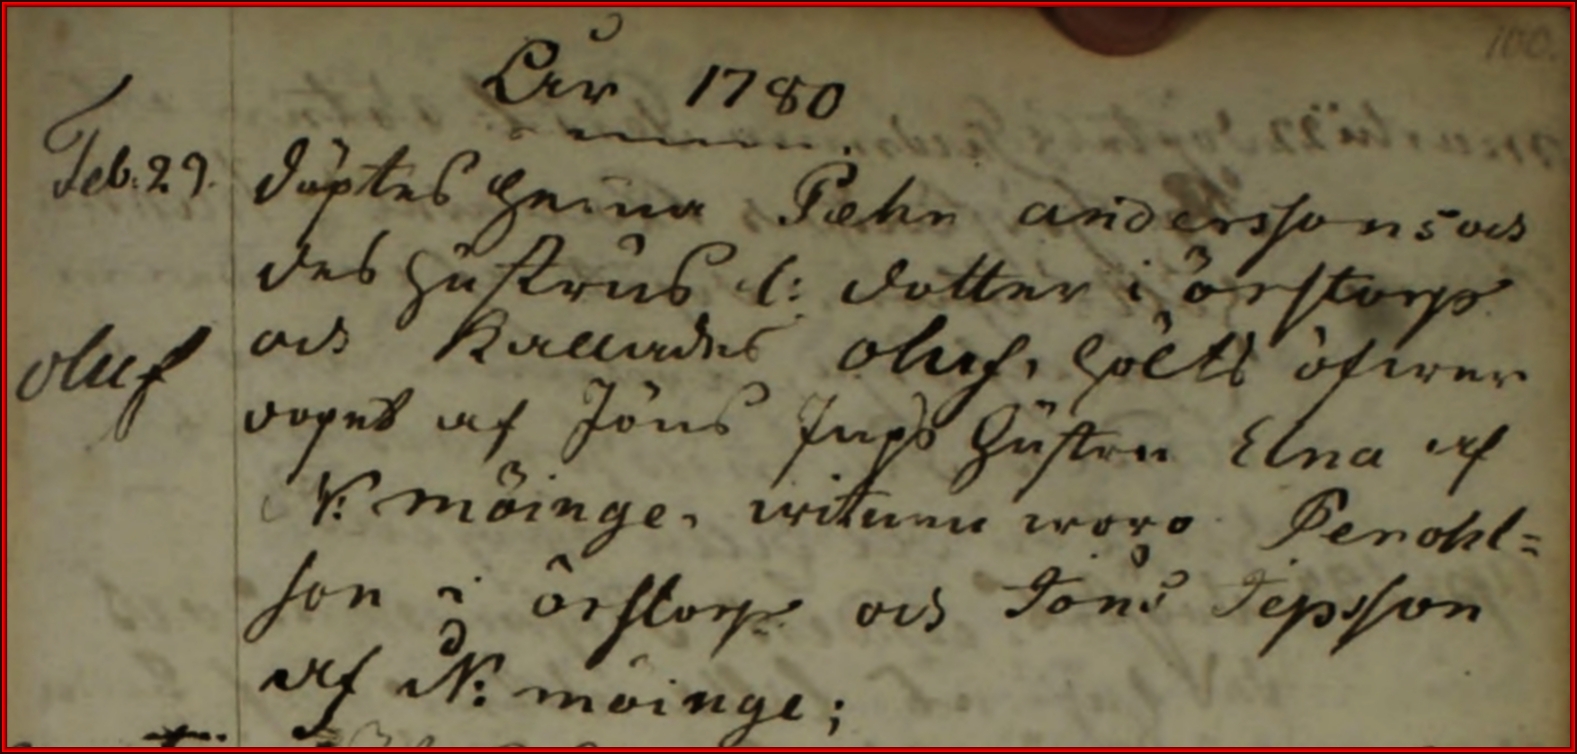 100.
Åhr 1780
Feb: 27. döptes Hema Pæhr anderssons och
des hustrus l: dotter i örstorp
oluf och Kallades oluf, hölts öfwer
dopet af Jöns Jeps hustru Elna af
N: möinge, witnen woro Per ohl=
son i örstorp och Jöns Jepsson
af N: möinge;